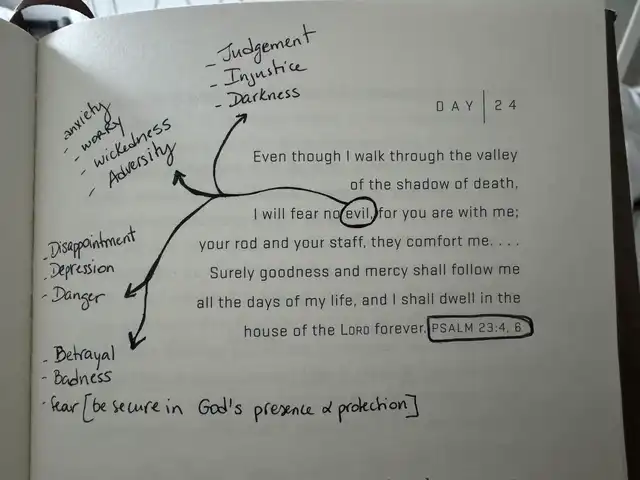 - Judgement
- Injustice
- Darkness
anxiety
- worry
- wickedness
- Adversity
DAY | 24
Even though I walk through the valley
of the shadow of death,
I will fear no evil, for you are with me;
your rod and your staff, they comfort me. . . .
Surely goodness and mercy shall follow me
all the days of my life, and I shall dwell in the
house of the LORD forever. PSALM 23:4, 6
- Disappointment
- Depression
- Danger
- Betrayal
- Badness
- fear [be secure in God's presence & protection]